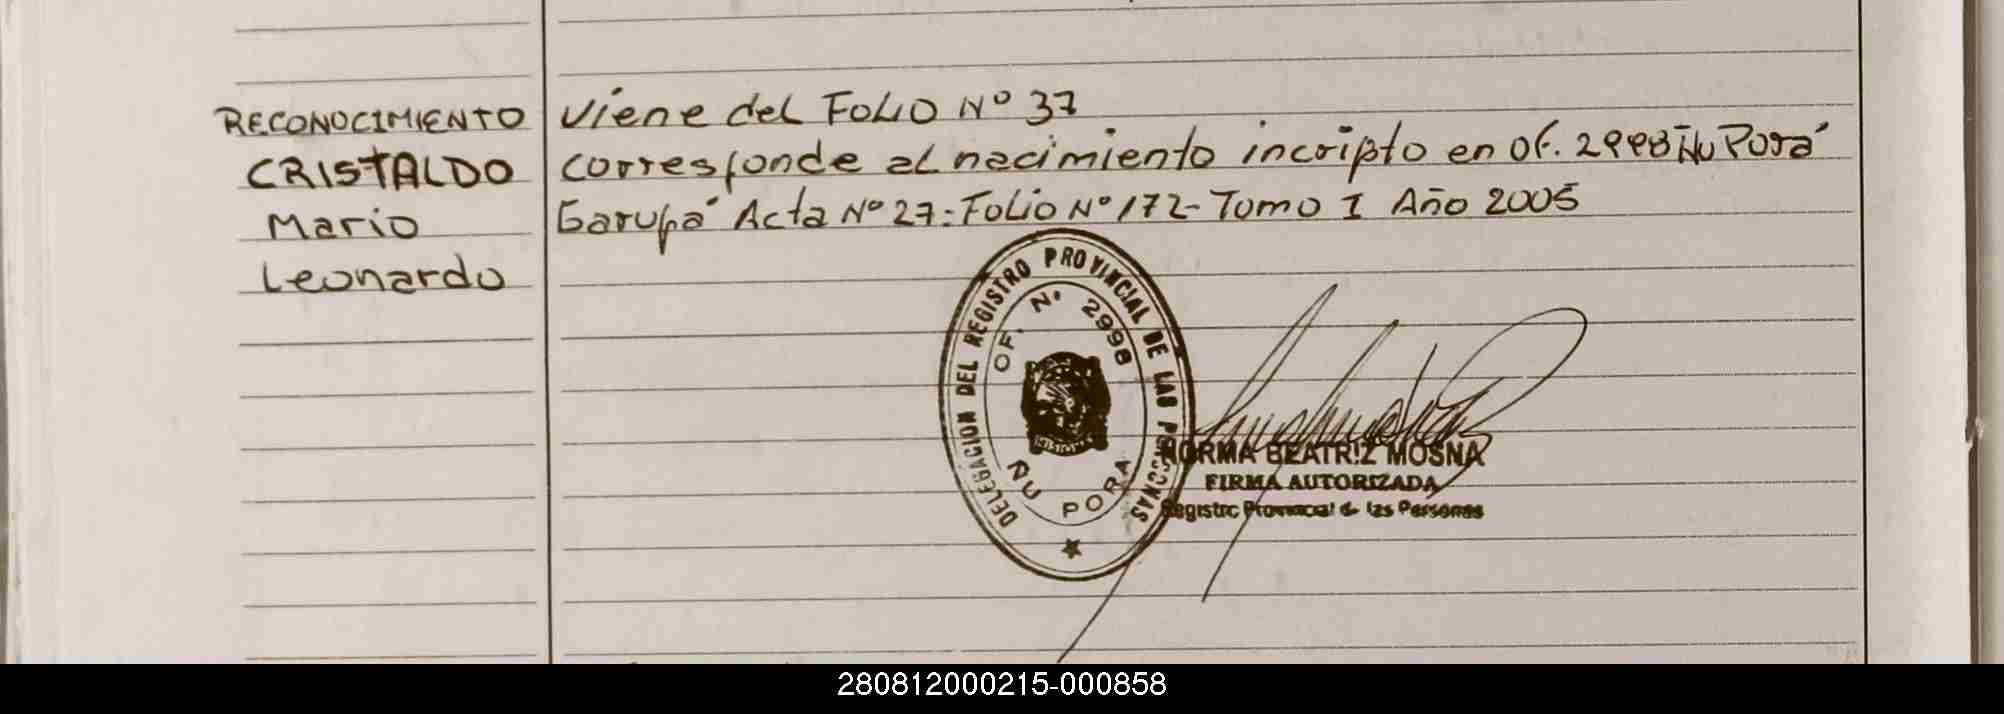 RECONOCIMIENTO
CRISTALDO
Mario
Leonardo
Viene del FOLIO Nº 37
corresponde al nacimiento incripto en Of. 2998 Ñu Porá
Garupá Acta Nº 27: Folio Nº 172- Tomo I Año 2005
DELEGACION DEL REGISTRO PROVINCIAL DE LAS PERSONAS
OF. Nº 2998
MISIONES
ÑU PORA
NORMA BEATRIZ MOSNA
FIRMA AUTORIZADA
Registro Provincial de las Personas
280812000215-000858